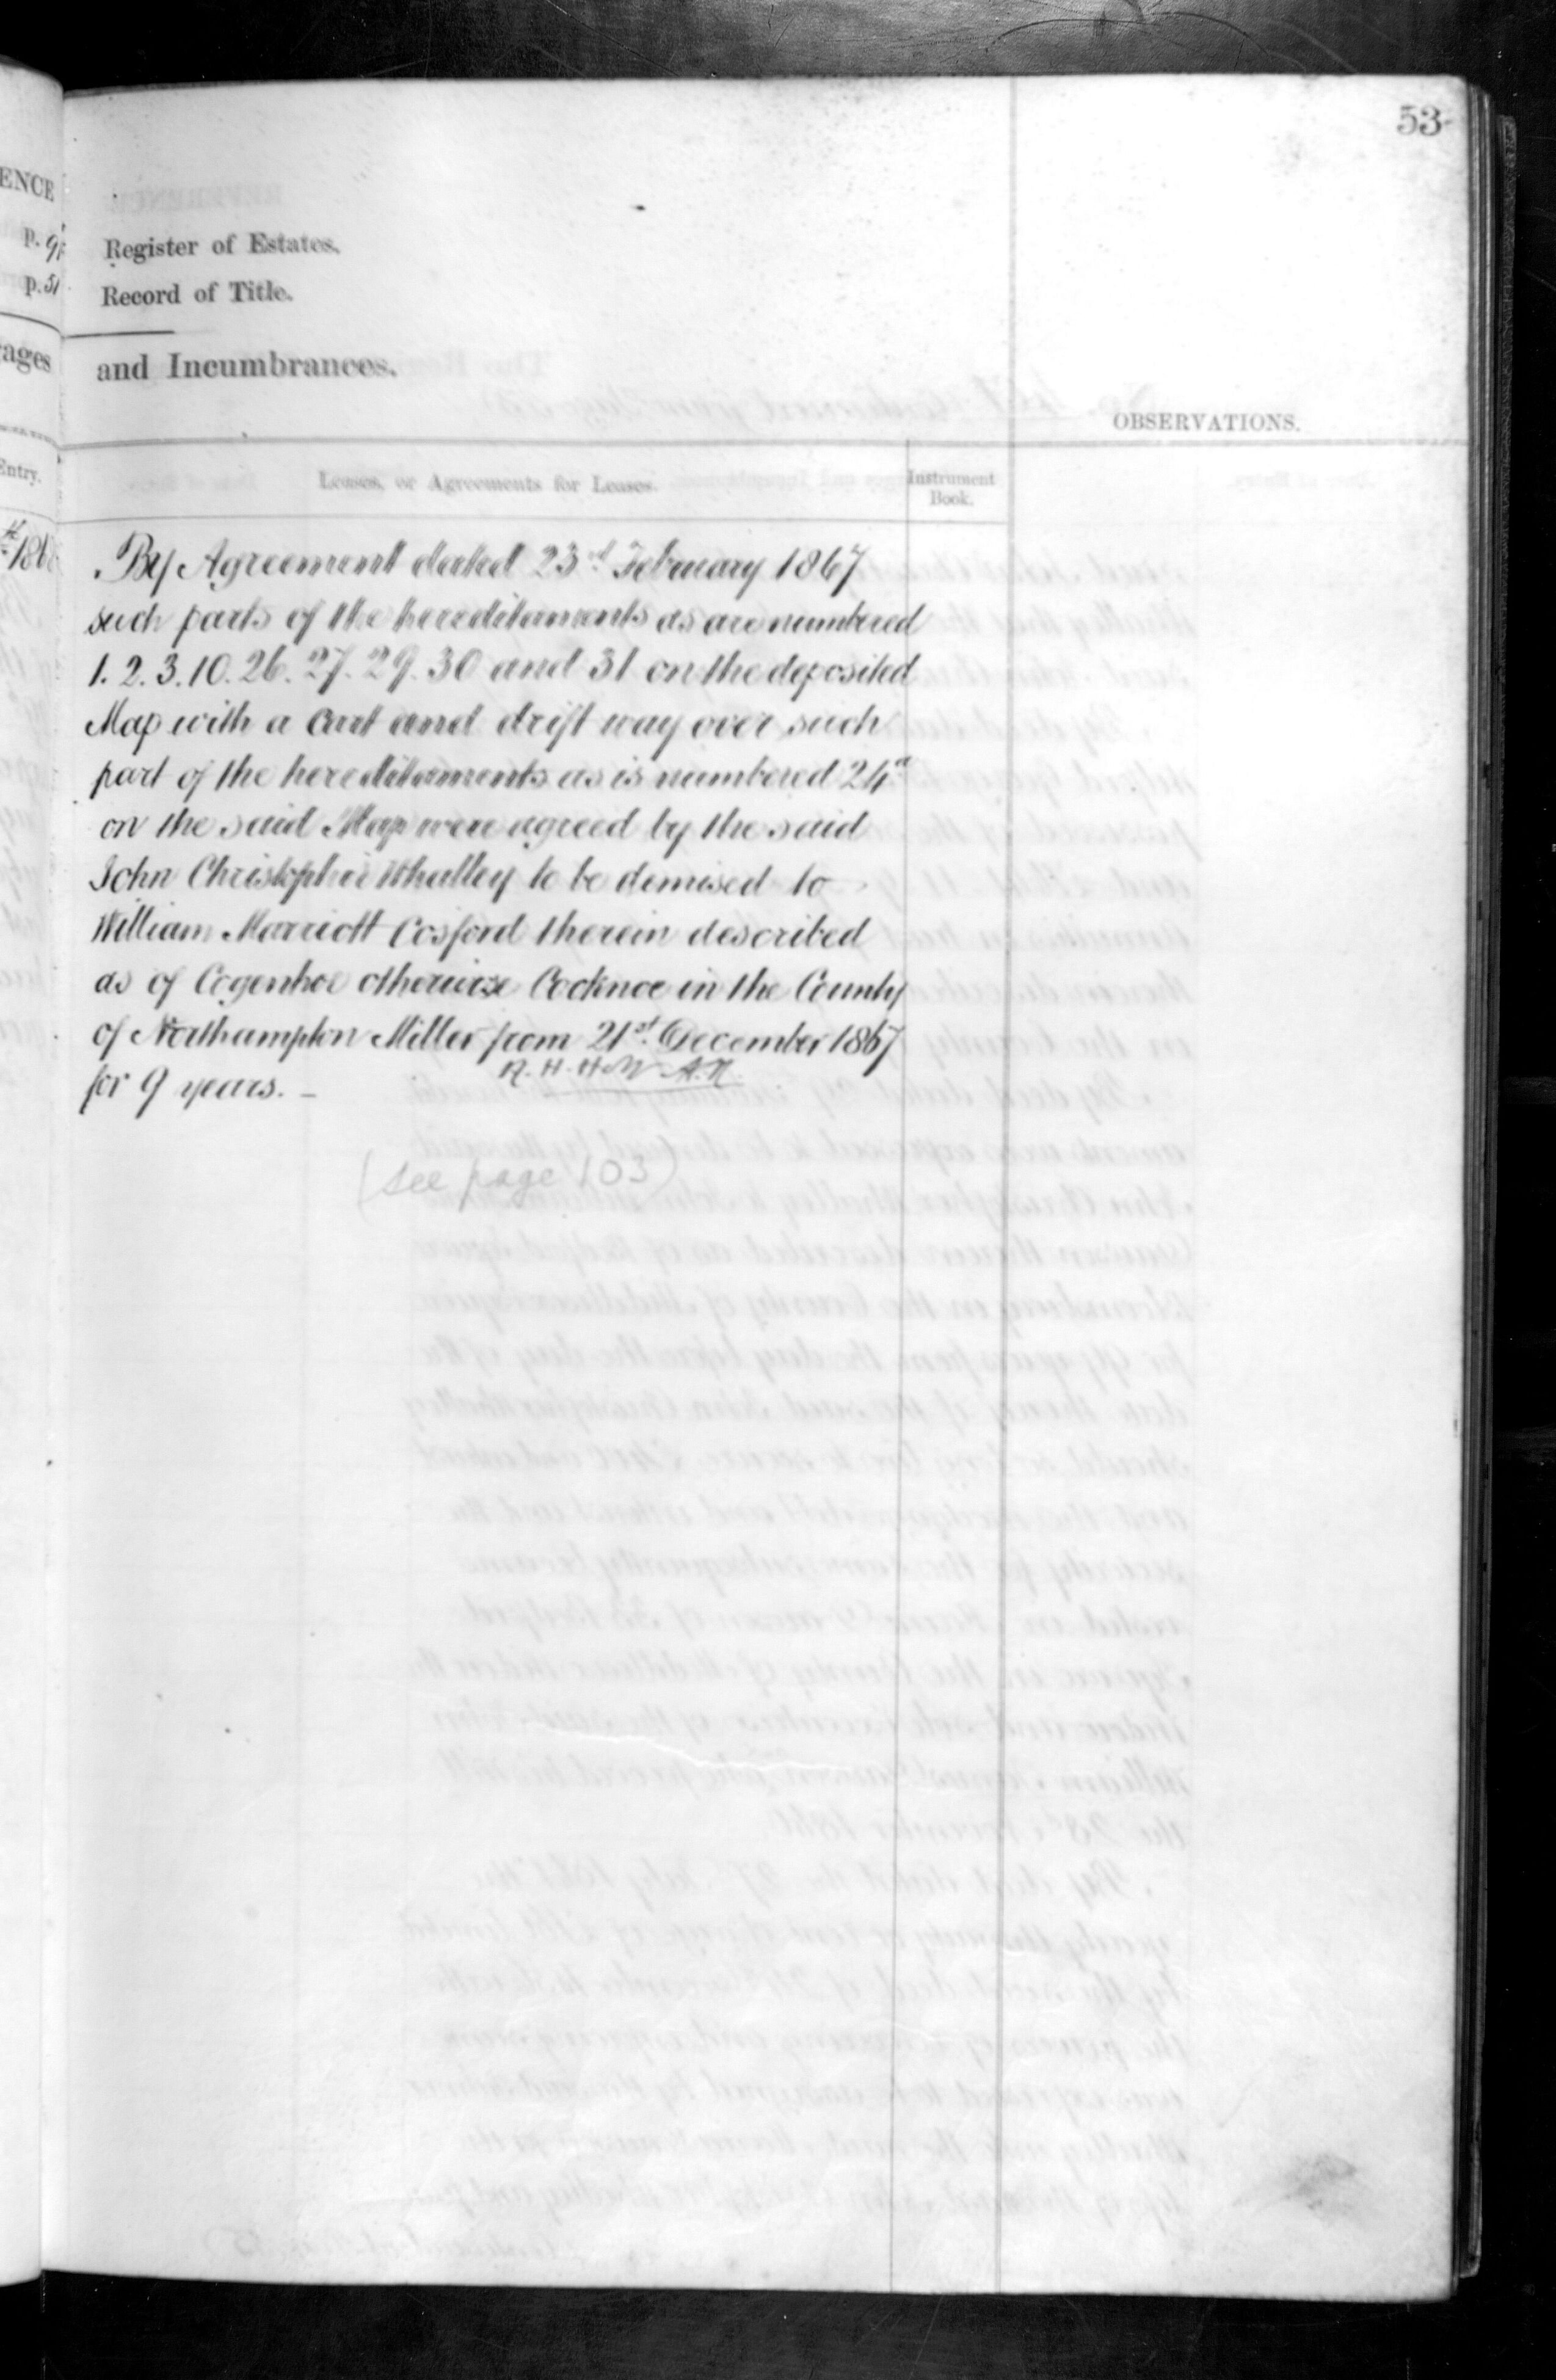 53
ENCE
p. 9
p. 51
ages
Entry.
Register of Estates.
Record of Title.
and Incumbrances.
OBSERVATIONS.
Leases, or Agreements for Leases.
Instrument
Book.
By Agreement dated 23rd February 1867
such parts of the hereditaments as are numbered
1. 2. 3. 10. 26. 27. 29. 30 and 31 on the deposited
Map with a cart and drift way over such
part of the hereditaments as is numbered 24a
on the said Map were agreed by the said
John Christopher Whalley to be demised to
William Marriott Cosford therein described
as of Cogenhoe otherwise Cooknoe in the County
of Northampton Miller from 21st December 1867
for 9 years. –
(see page 103)